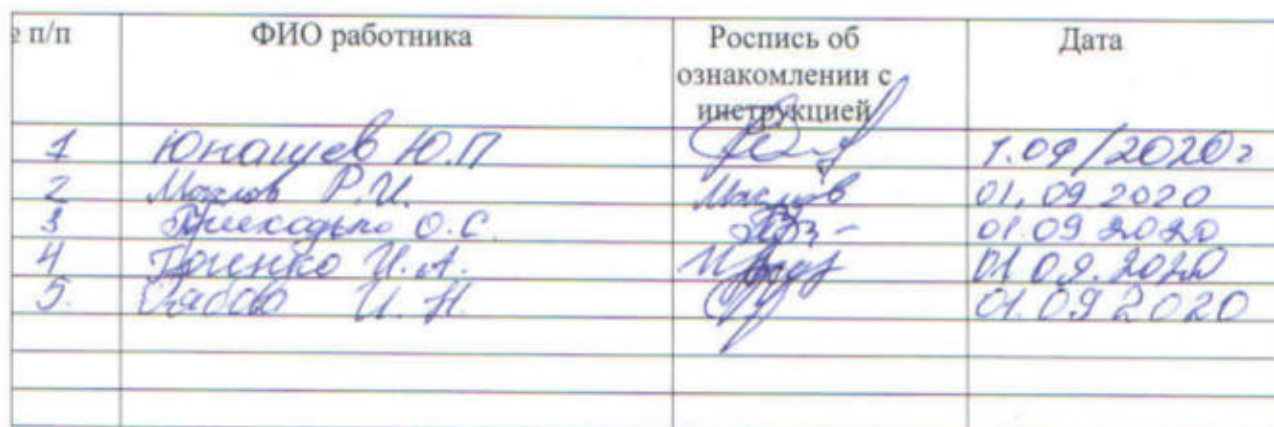 № п/п ФИО работника Роспись об ознакомлении с инструкцией Дата
1 Юнашев Ю.П 1.09/2020г
2 Маслов Р.И. Маслов 01.09 2020
3 Приходько О.С. 01.09 2020
4 И.А. 01 09. 2020
5. И.Н. 01.09 2020